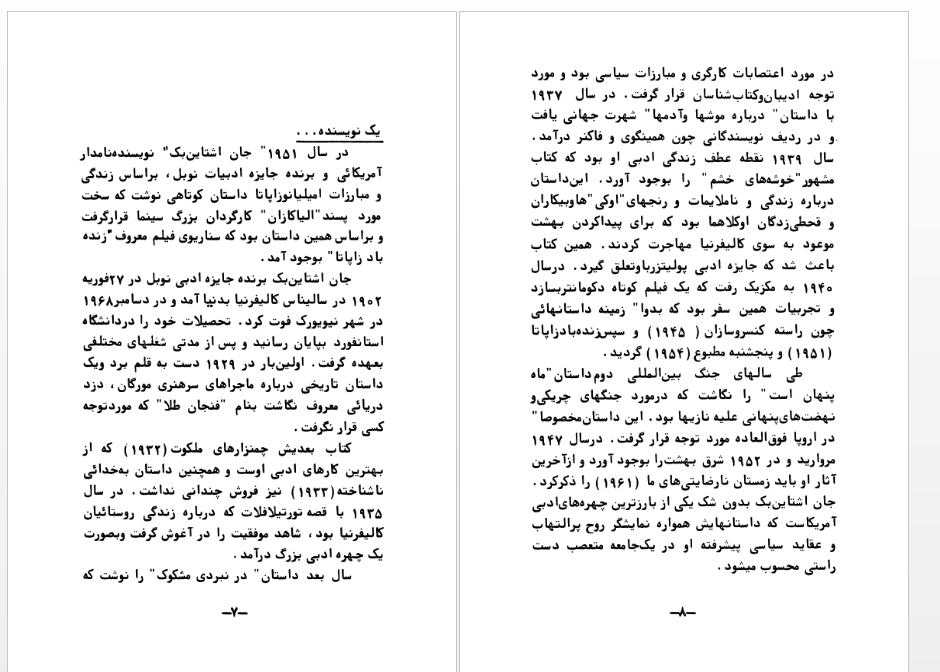 یک نویسنده...
در سال ۱۹۵۱" جان اشتاین‌بک" نویسنده‌نامدار
آمریکائی و برنده جایزه ادبیات نوبل، براساس زندگی
و مبارزات امیلیانوزاپاتا داستان کوتاهی نوشت که سخت
مورد پسند"الیاکازان" کارگردان بزرگ سینما قرارگرفت
و براساس همین داستان بود که سناریوی فیلم معروف "زنده
باد زاپاتا" بوجود آمد.
جان اشتاین‌بک برنده جایزه ادبی نوبل در ۲۷فوریه
۱۹۰۲ در سالیناس کالیفرنیا بدنیا آمد و در دسامبر۱۹۶۸
در شهر نیویورک فوت کرد. تحصیلات خود را دردانشگاه
استانفورد بپایان رسانید و پس از مدتی شغلهای مختلفی
بعهده گرفت. اولین‌بار در ۱۹۲۹ دست به قلم برد ویک
داستان تاریخی درباره ماجراهای سرهنری مورگان، دزد
دریائی معروف نگاشت بنام "فنجان طلا" که موردتوجه
کسی قرار نگرفت.
کتاب بعدیش چمنزارهای ملکوت(۱۹۳۲) که از
بهترین کارهای ادبی اوست و همچنین داستان به‌خدائی
ناشناخته(۱۹۳۳) نیز فروش چندانی نداشت. در سال
۱۹۳۵ با قصه تورتیلافلات که درباره زندگی روستائیان
کالیفرنیا بود، شاهد موفقیت را در آغوش گرفت وبصورت
یک چهره ادبی بزرگ درآمد.
سال بعد داستان" در نبردی مشکوک" را نوشت که
-۷-
در مورد اعتصابات کارگری و مبارزات سیاسی بود و مورد
توجه ادیبان‌وکتاب‌شناسان قرار گرفت. در سال ۱۹۳۷
با داستان" درباره موشها وآدمها" شهرت جهانی یافت
و در ردیف نویسندگانی چون همینگوی و فاکنر درآمد.
سال ۱۹۳۹ نقطه عطف زندگی ادبی او بود که کتاب
مشهور"خوشه‌های خشم" را بوجود آورد. این‌داستان
درباره زندگی و ناملایمات و رنجهای"اوکی"هاوبیکاران
و قحطی‌زدگان اوکلاهما بود که برای پیداکردن بهشت
موعود به سوی کالیفرنیا مهاجرت کردند. همین کتاب
باعث شد که جایزه ادبی پولیتزرباوتعلق گیرد. درسال
۱۹۴۰ به مکزیک رفت که یک فیلم کوتاه دکومانتربسازد
و تجربیات همین سفر بود که بدوا" زمینه داستانهائی
چون راسته کنسروسازان( ۱۹۴۵) و سپس‌زنده‌بادزاپاتا
(۱۹۵۱) و پنجشنبه مطبوع(۱۹۵۴) گردید.
طی سالهای جنگ بین‌المللی دوم‌داستان"ماه
پنهان است" را نگاشت که درمورد جنگهای چریکی‌و
نهضت‌های‌پنهانی علیه نازیها بود. این داستان‌مخصوصا"
در اروپا فوق‌العاده مورد توجه قرار گرفت. درسال ۱۹۴۷
مروارید و در ۱۹۵۲ شرق بهشت‌را بوجود آورد و ازآخرین
آثار او باید زمستان نارضایتی‌های ما (۱۹۶۱) را ذکرکرد.
جان اشتاین‌بک بدون شک یکی از بارزترین چهره‌های‌ادبی
آمریکاست که داستانهایش همواره نمایشگر روح پرالتهاب
و عقاید سیاسی پیشرفته او در یک‌جامعه متعصب دست
راستی محسوب میشود.
-۸-